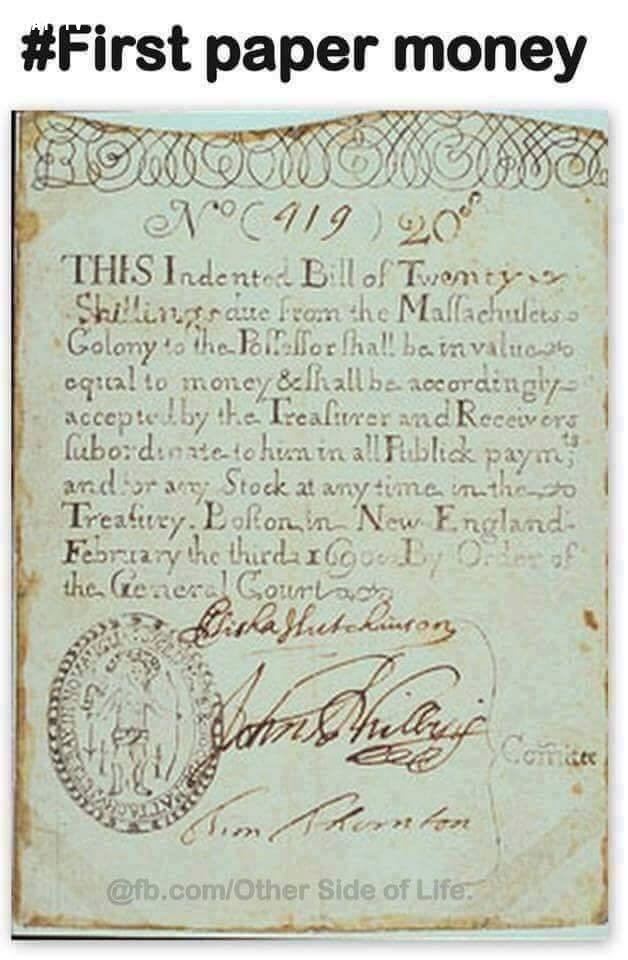 #First paper money
Nº (419) 20ˢ
THIS Indented Bill of Twenty
Shillings due from the Maſſachuſets
Colony to the Poſſeſſor ſhall be in value
equal to money & ſhall be accordingly
accepted by the Treaſurer and Receivers
ſubordinate to him in all Publick paymᵗˢ
and for any Stock at any time in the
Treaſury. Boſton in New England
February the third 1690. By Order of
the General Court
Elisha Hutchinson
John Phillips
Comittee
Tim Thornton
@fb.com/Other Side of Life.